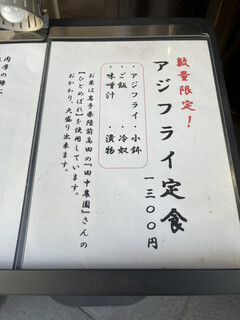 数量限定！
アジフライ定食
一三〇〇円
・アジフライ ・小鉢
・ご飯 ・冷奴
・味噌汁 ・漬物
お米は岩手県陸前高田の『田中農園』さんの
【ひとめぼれ】を使用しています。
おかわり、大盛り出来ます。